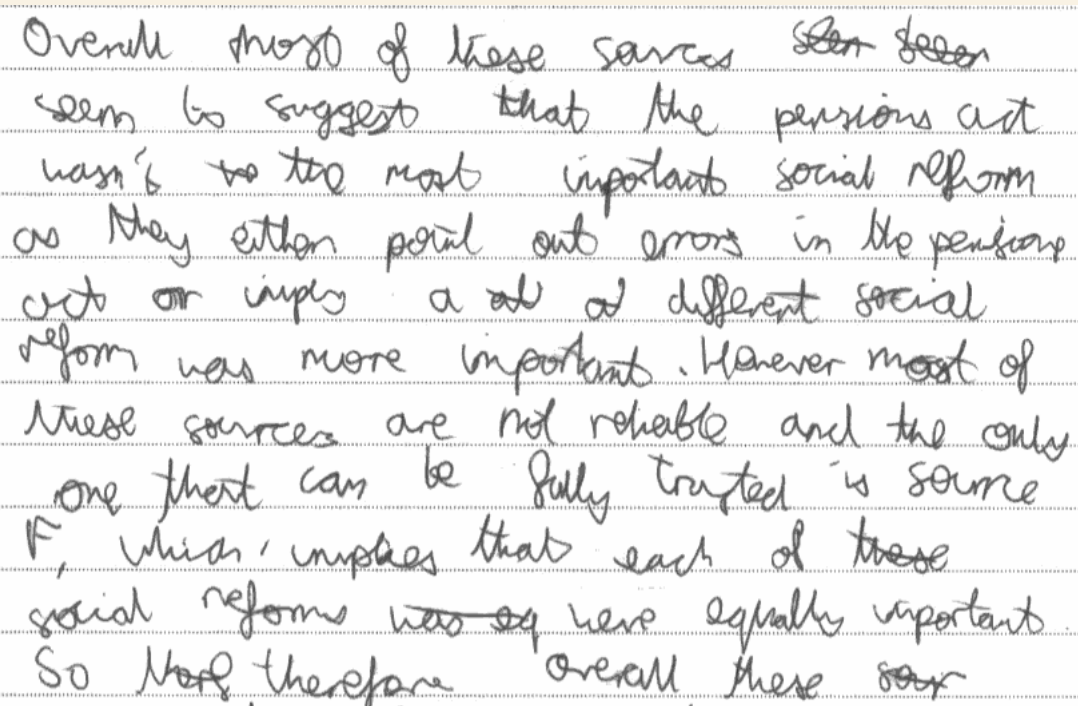 Overall most of these sources seem
seem to suggest that the pensions act
wasn't to the most important social reform
as they either point out errors in the pensions
act or imply a at a different social
reform was more important. However most of
these sources are not reliable and the only
one that can be fully trusted is source
F, which implies that each of these
social reforms was eq were equally important.
So therefore overall these sour